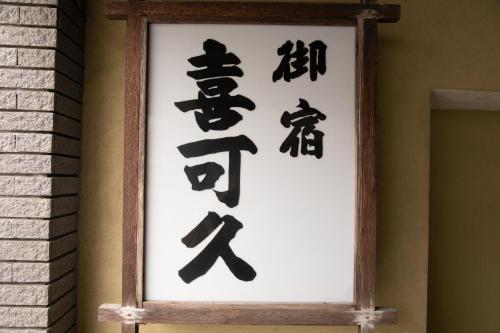 御宿
喜可久